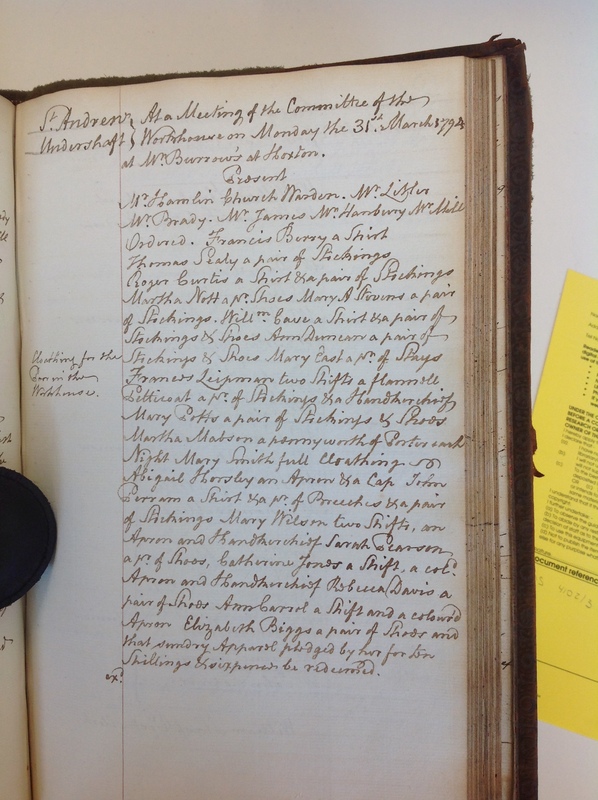 St. Andrew } At a Meeting of the Committee of the
Undershaft } Workhouse on Monday the 31st. March 1794
at Mr. Burrows's at Hoxton.
Present
Mr. Hamlin Church Warden. Mr. Litler
Mr. Brady. Mr. James Mr. Hanbury Mr. Mill
Ordered. Francis Berry a Shirt
Thomas Sealy a pair of Stockings
Roger Curtis a Shirt & a pair of Stockings
Martha Nott a pr. Shoes Mary A Stevens a pair
of Stockings. Willm. Cave a Shirt & a pair of
Stockings & Shoes Ann Duncan a pair of
Cloathing for the
Poor in the
Workhouse.
Stockings & Shoes Mary East a pr. of Stays
Frances Lipman two Shifts a flannell
Petticoat a pr. of Stockings & a Handkerchief
Mary Potts a pair of Stockings & Shoes
Martha Mabson a pennyworth of Porter each
Night Mary Smith full Cloathing
Abigail Horsley an Apron & a Cap John
Perram a Shirt & a pr. of Breeches & a pair
of Stockings Mary Wilson two Shifts, an
Apron and Handkerchief Sarah Pearson
a pr. of Shoes, Catherine Jones a Shift, a cold.
Apron and Handkerchief Rebecca Davis a
pair of Shoes Ann Carrol a Shift and a coloured
Apron Elizabeth Biggs a pair of Shoes and
that sundry Apparel pledged by her for ten
Shillings & sixpence be redeemed.
exd.
UNDER THE
BEFORE A CO
RESEARCH O
OWNER OF TH
ocument referenc
4102/3